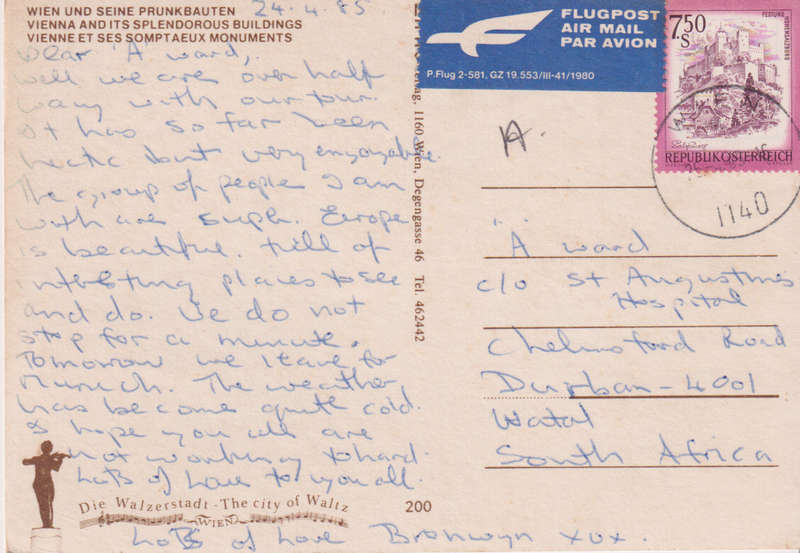 WIEN UND SEINE PRUNKBAUTEN
VIENNA AND ITS SPLENDOROUS BUILDINGS
VIENNE ET SES SOMPTAEUX MONUMENTS
24.4.85
Dear 'A' ward,
Well we are over half
way with our tour.
It has so far been
hectic but very enjoyable
The group of people I am
with are supb. Europe
is beautiful. Full of
interesting places to see
and do. We do not
stop for a minute.
Tomorrow we leave for
Munich. The weather
has become quite cold.
I hope you all are
not working to hard.
Lots of love to you all.
Die Walzerstadt - The city of Waltz
WIEN
200
Lots of Love Bronwyn xox.
1160 Wien, Degengasse 46 Tel. 462442
FLUGPOST
AIR MAIL
PAR AVION
P.Flug 2-581, GZ 19.553/III-41/1980
7.50
S
FESTUNG
HOHENSALZBURG
Salzburg
REPUBLIK ÖSTERREICH
1140
A.
"A" ward
c/o St Augustines
Hospital
Chelmsford Road
Durban - 4001
Natal
South Africa